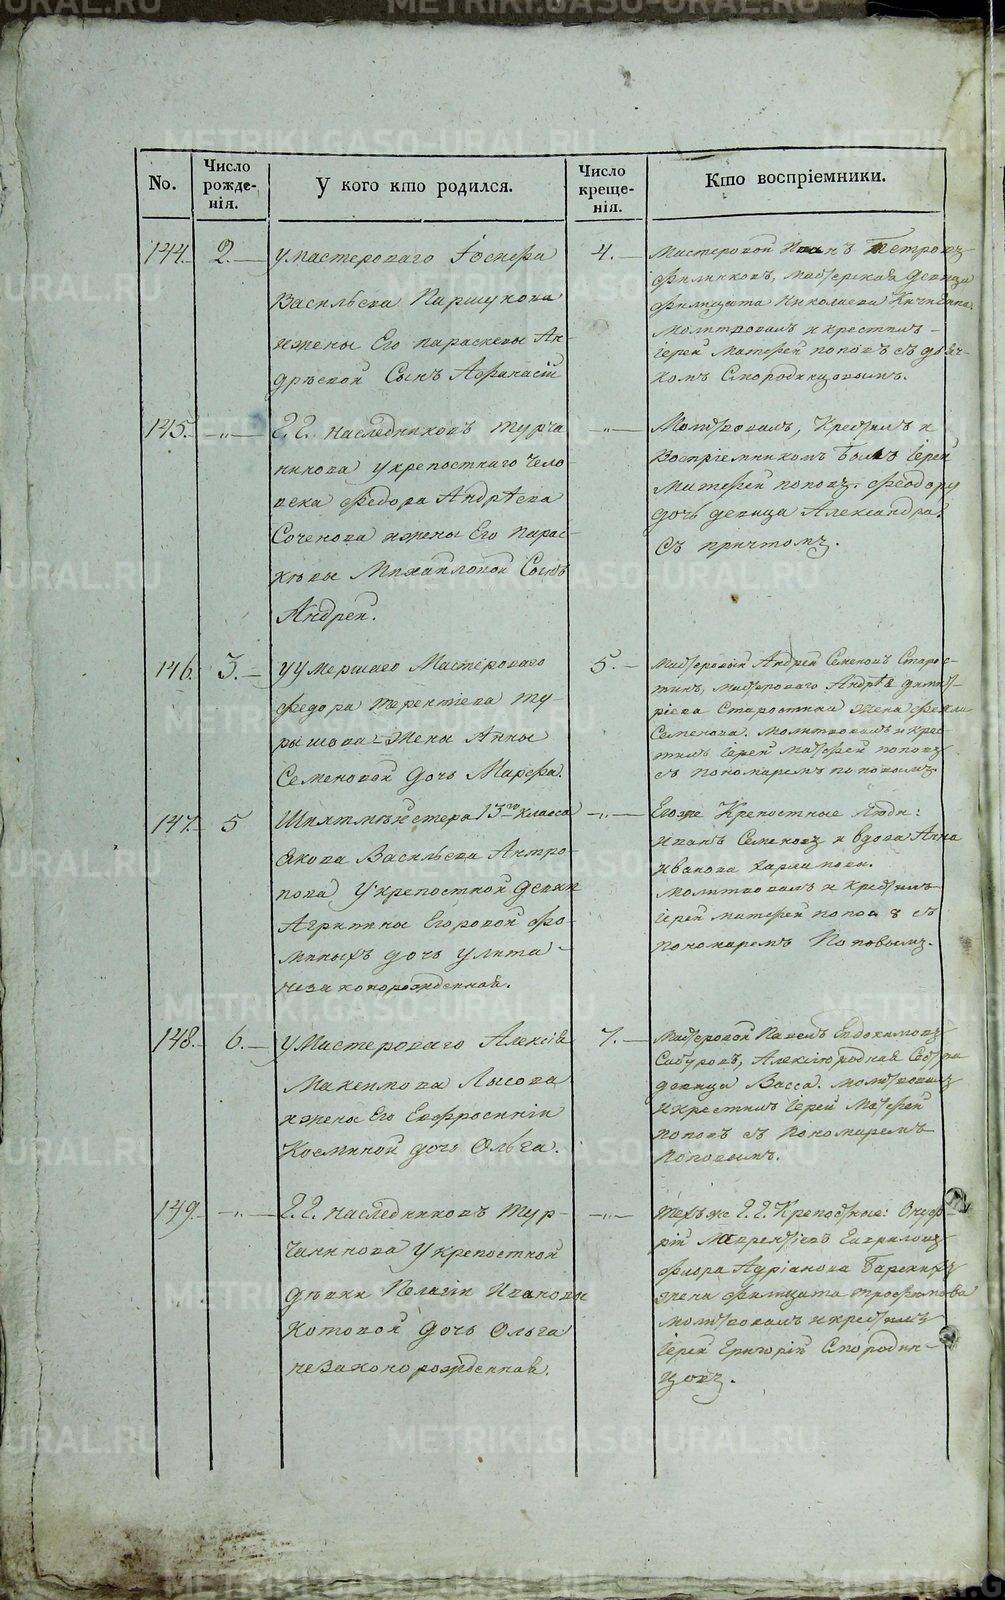 No.
Число рожде- нія.
У кого кто родился.
Число креще- нія.
Кто воспріемники.
144. 2.
у мастероваго Іосифа
Васильева Паршукова
и жены Его параскевы Ан-
дрѣевой Сынъ Афанасій
4.
Мастеровой Иванъ Петровъ
Филинковъ, девица
Филицата Николаева
Молитвовалъ и крестилъ
Іерей Матфей поповъ съ дьяч-
комъ Смородинцовымъ.
145. „
Г.Г. наследниковъ Турча
нинова у крепостнаго чело
века Федора Андрѣева
Соченова и жены Его Парас-
кевы Михайловой Сынъ
Андрей.
„
Молитвовалъ, Крестилъ и
Воспріемникомъ былъ Іерей
Матфей поповъ.
дочь девица Александра.
съ причтомъ.
146. 3.
у умершаго Мастероваго
Федора Терентіева Ту-
рышева Жены Анны
Семеновой дочь Марфа.
5.
Мастеровый Андрей Семеновъ Старос-
тинъ, мастероваго Андрѣя димит-
ріева Старостина Жена Фекла
Семенова. Молитвовалъ и крес-
тилъ Іерей Матфей поповъ
съ пономаремъ поповымъ.
147. 5
Шихтмейстера 13го класса
Якова Васильева Антро-
пова у крепостной девки
Агрипины Егоровой Фо-
миныхъ дочь улита
незаконорожденная.
„
Егоже Крепостные Люди:
иванъ Семеновъ и вдова Анна
Иванова
молитвовалъ и крестилъ
Іерей матфей поповъ съ
пономаремъ Поповымъ.
148. 6.
у Мастероваго Алексія
Макимова Лысова
и жены Его Евфросиніи
Косминой дочь Ольга.
7.
Мастеровой Павелъ Евдокимовъ
Сабуровъ, Алексію родная Сестра
девица Васса. молитвовалъ
и крестилъ Іерей Матфей
поповъ съ Пономаремъ
Поповымъ.
149. „
Г.Г. наследниковъ Тур-
чанинова у крепостной
девки Пелагіи Ивановы
Котовой дочь Ольга
незаконорожденная.
„
Техъже Г.Г. Крепостные: Онуф-
рій Лаврентіевъ Гавриловъ
Адріанова
жена Филицата трофимова
молитвовалъ и крестилъ
Іерей Григорій Смородин-
цовъ.
METRIKI.GASO-URAL.RU